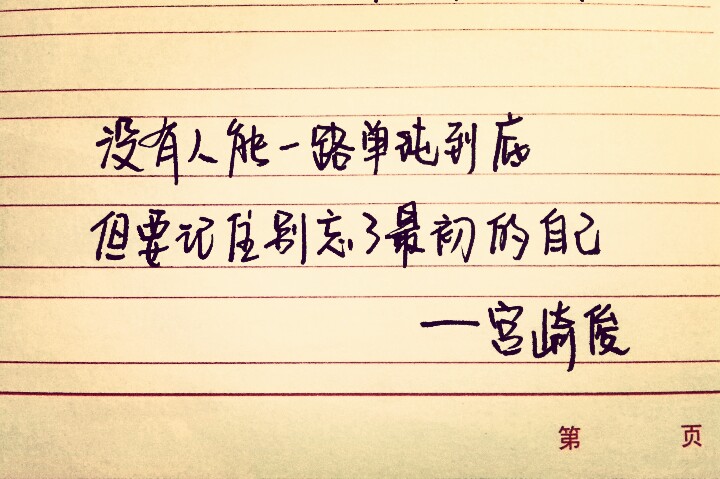 没有人能一路单纯到底
但要记住别忘了最初的自己
—宫崎俊
第 页